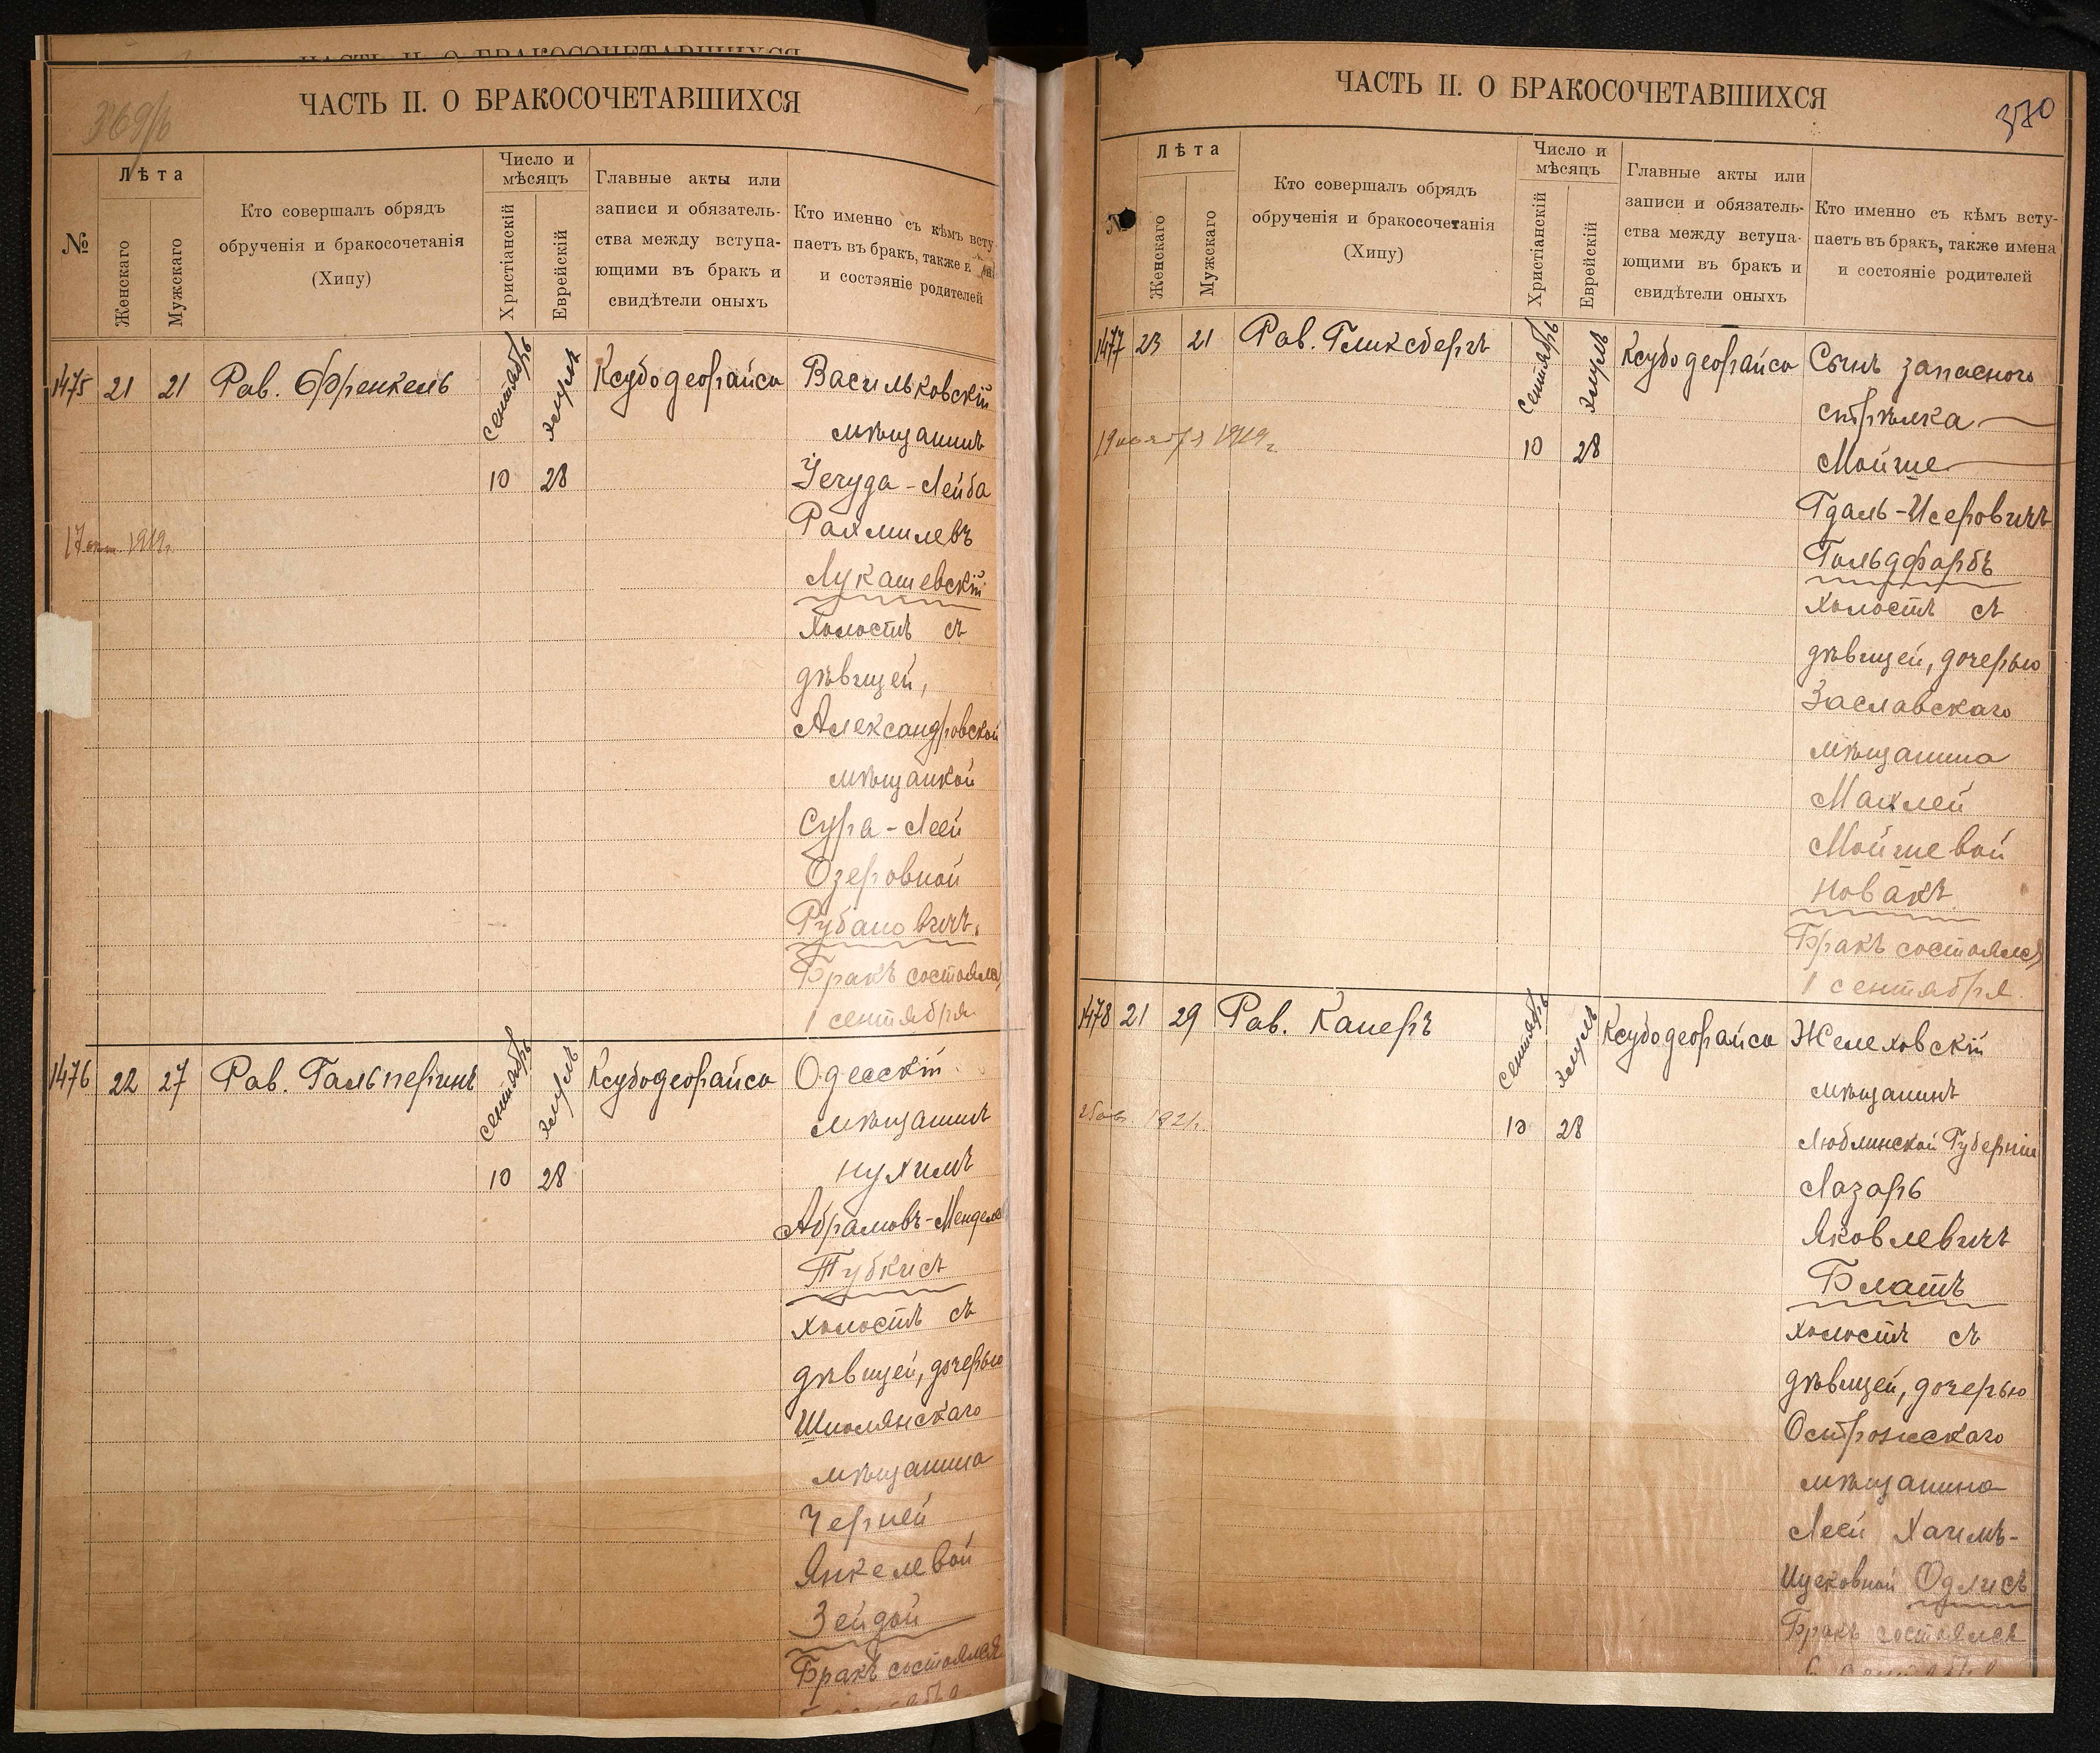 ЧАСТЬ II. О БРАКОСОЧЕТАВШИХСЯ
369/б
ЧАСТЬ II. О БРАКОСОЧЕТАВШИХСЯ
№
Лѣта
Женскаго
Мужскаго
Кто совершалъ обрядъ
обрученія и бракосочетанія
(Хипу)
Число и
мѣсяцъ
Христіанскій
Еврейскій
Главные акты или
записи и обязатель-
ства между вступа-
ющими въ бракъ и
свидѣтели оныхъ
Кто именно съ кѣмъ всту
паетъ въ бракъ, также и
и состэяніе родителей
1475 21 21 Рав. Френкель
сентябрь
Элулъ
10 28
Ксубодеорайса
Васильковскій
мѣщанинъ
Іегуда-Лейба
Рахмилевъ
Лукашевскій
холостъ съ
дѣвицей,
Александровской
мѣщанкой
Сура-Леей
Озеровной
Рубановичъ.
Бракъ состоялся
1 сентября
17 1919г.
1476 22 27 Рав. Гальперинъ
сентябрь
Элулъ
10 28
Ксубодеорайса
Одесскій
мѣщанинъ
Нухимъ
Абрамовъ-Мендел
Тубкисъ
холостъ съ
дѣвицей, дочерью
Шполянскаго
мѣщанина
Черней
Янкелевой
Зейдой
Бракъ состоялся
370
ЧАСТЬ II. О БРАКОСОЧЕТАВШИХСЯ
№
Лѣта
Женскаго
Мужскаго
Кто совершалъ обрядъ
обрученія и бракосочетанія
(Хипу)
Число и
мѣсяцъ
Христіанскій
Еврейскій
Главные акты или
записи и обязатель-
ства между вступа-
ющими въ бракъ и
свидѣтели оныхъ
Кто именно съ кѣмъ всту-
паетъ въ бракъ, также имена
и состояніе родителей
1477 23 21 Рав. Гликсбергъ
сентябрь
Элулъ
10 28
Ксубодеорайса
Сынъ запаснаго
стрѣлка
Мойше
Гдаль-Исеровичъ
Гольдфарбъ
холостъ съ
дѣвицей, дочерью
Заславскаго
мѣщанина
Махлей
Мойшевой
Новакъ
Бракъ состоялся
1 сентября.
19 ноября 1919г.
1478 21 29 Рав. Канеръ
сентябрь
Элулъ
10 28
Ксубодеорайса
Желеховскій
мѣщанинъ
Люблинской Губерніи
Лазарь
Яковлевичъ
Блатъ
холостъ съ
дѣвицей, дочерью
Острожскаго
мѣщанина
Леей Хаимъ-
Ицековной Одлисъ
Бракъ состоялся
1921г.